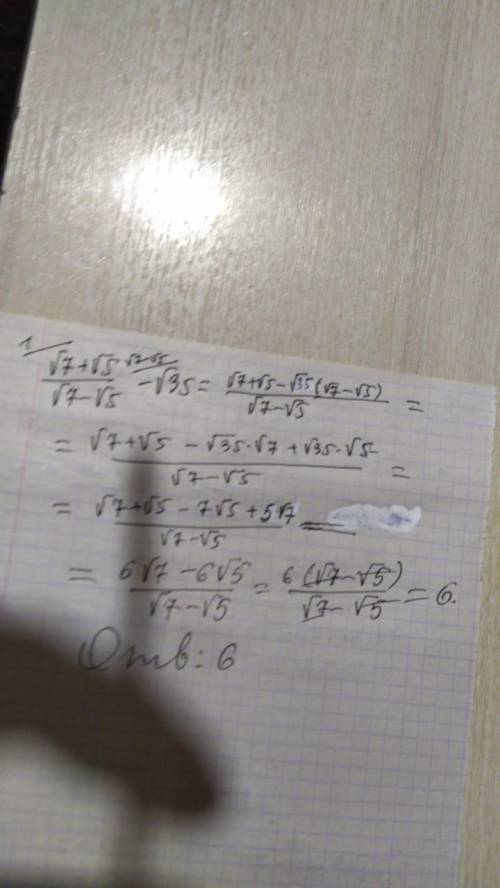 1
(√7+√5)/(√7-√5) ^(√7-√5) -√35 = (√7+√5-√35(√7-√5))/(√7-√5) =
= (√7+√5 - √35·√7 + √35·√5)/(√7-√5) =
= (√7+√5-7√5+5√7)/(√7-√5) =
= (6√7-6√5)/(√7-√5) = (6(√7-√5))/(√7-√5) = 6.
Отв: 6